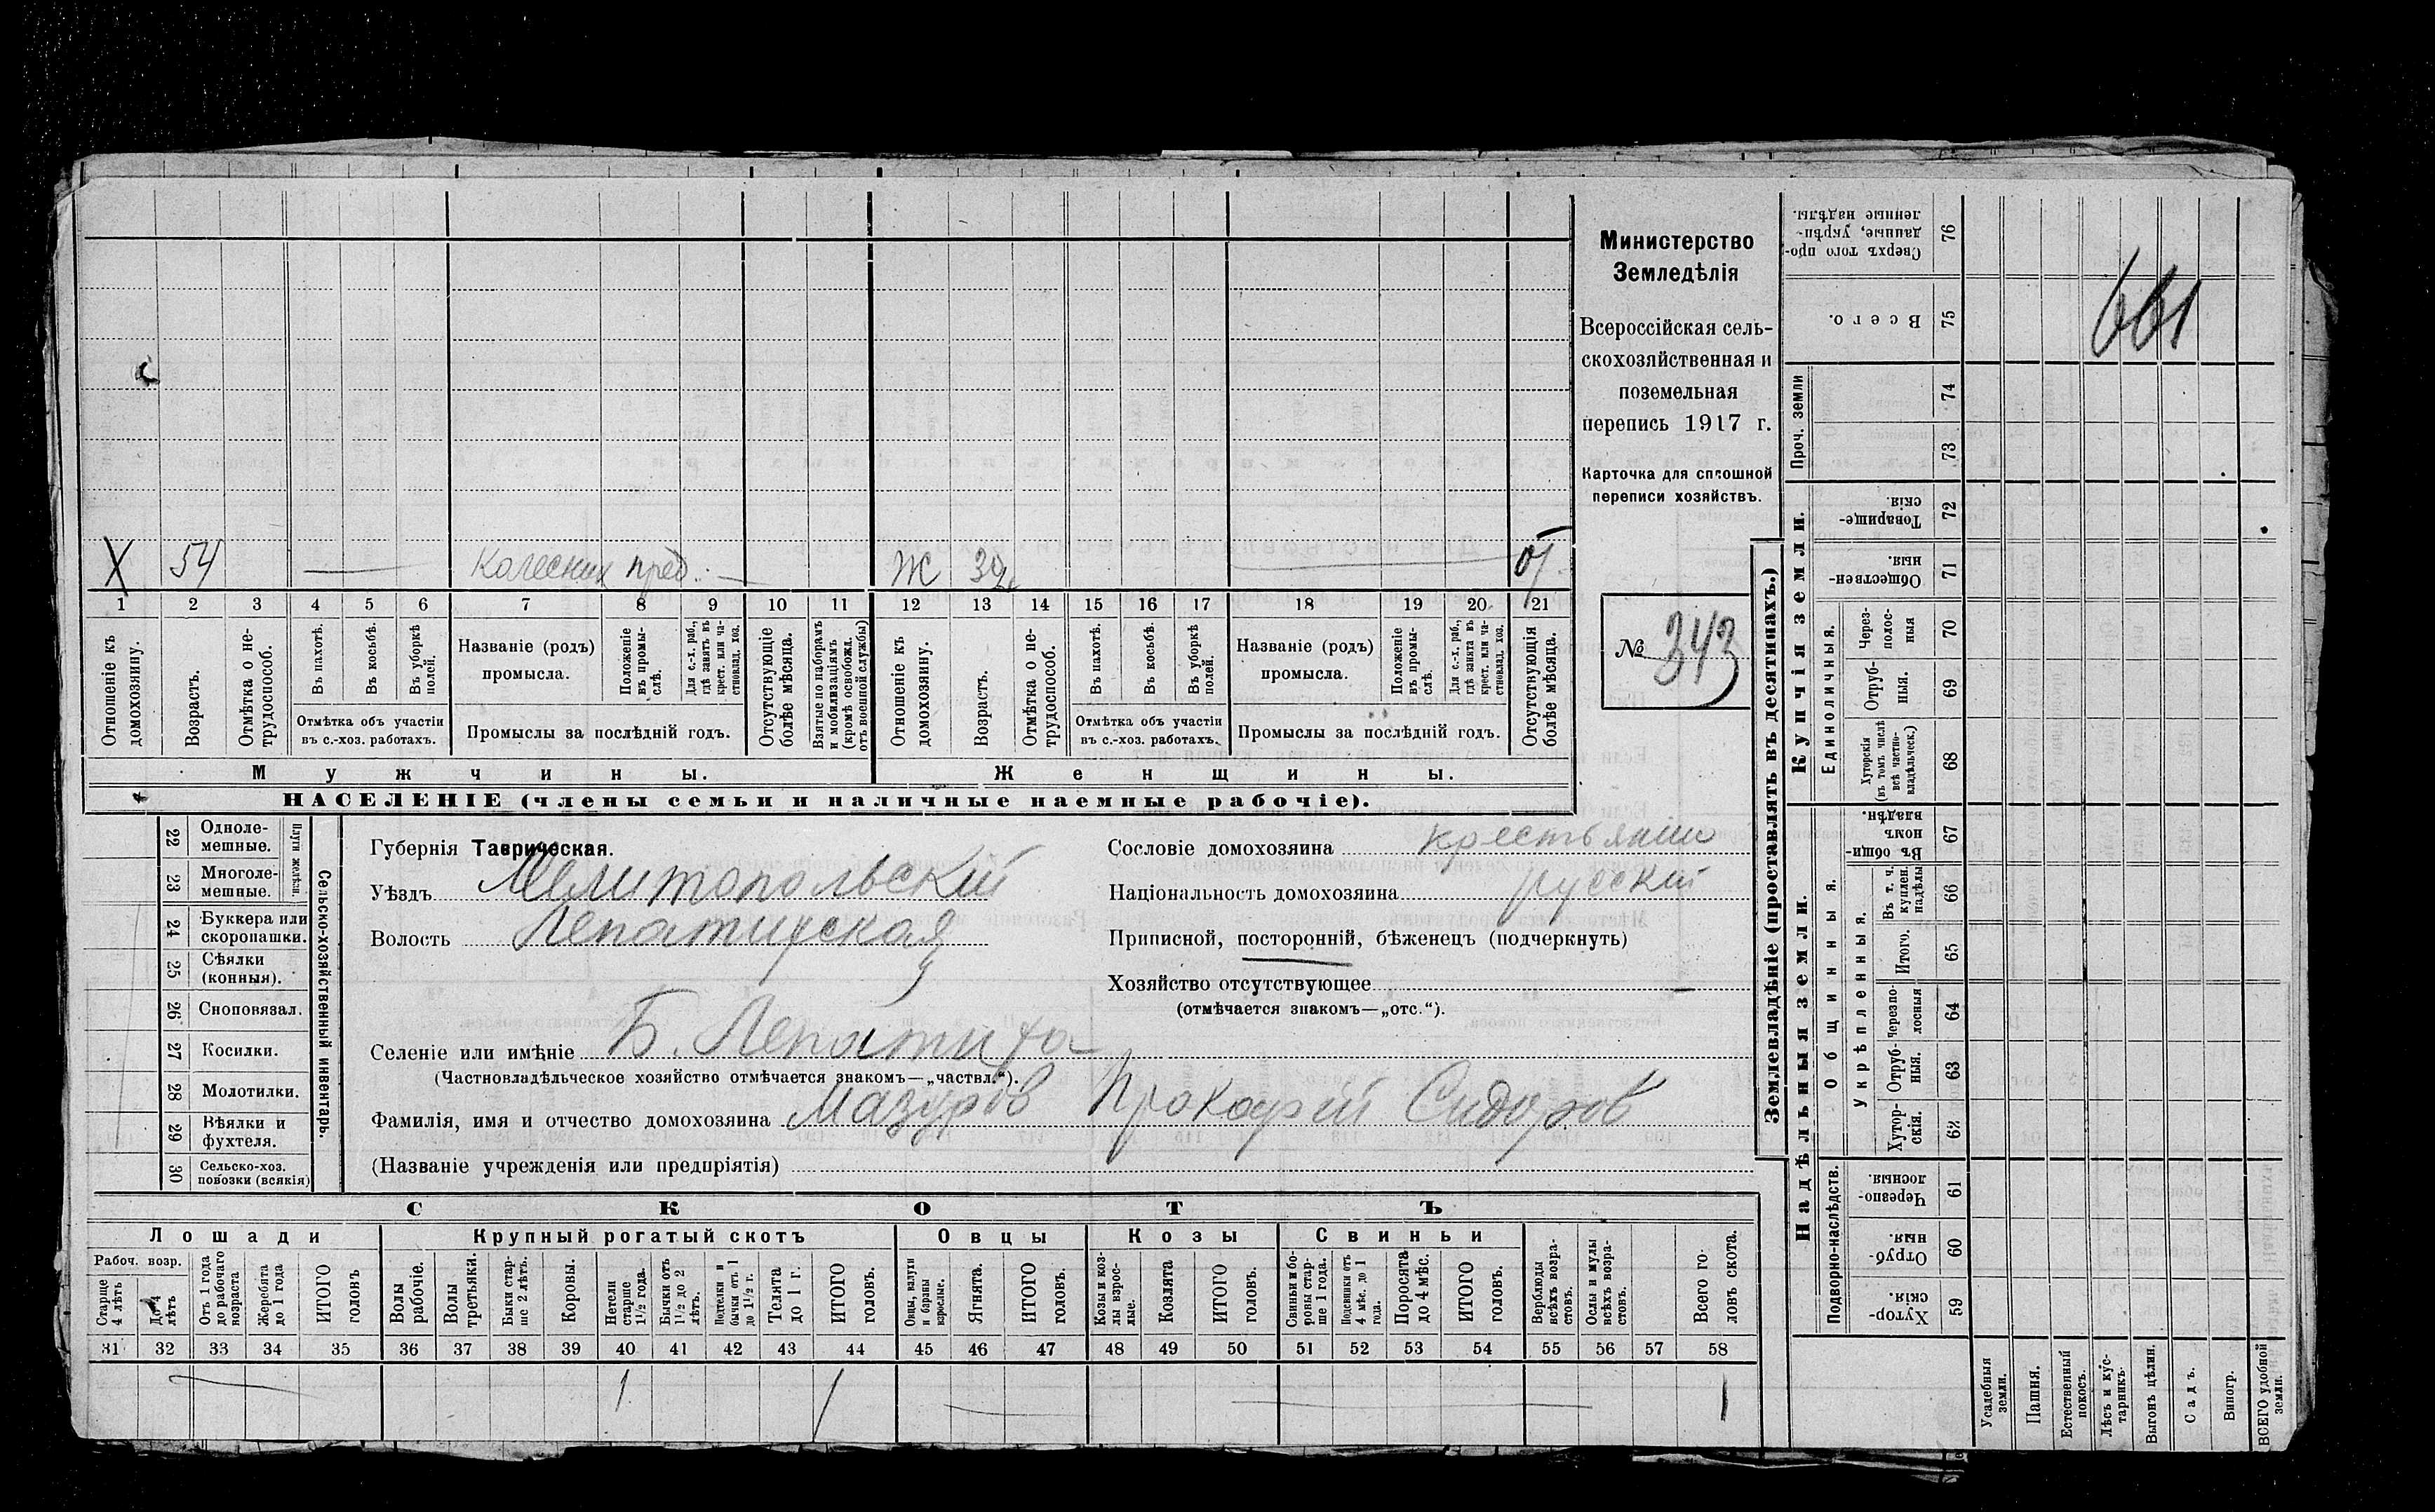 Министерство
Земледѣлія
Всероссійская сель-
скохозяйственная и
поземельная
перепись 1917 г.
Карточка для сплошной
переписи хозяйствъ.
№ 343
661
X 54 — Колесник пред. — Ж 39
1 2 3 4 5 6 7 8 9 10 11 12 13 14 15 16 17 18 19 20 21
Отношеніе къ домохозяину.
Возрастъ.
Отмѣтка о не-трудоспособ.
Въ пахотѣ.
Въ косьбѣ.
Въ уборкѣ полей.
Отмѣтка объ участіи
въ с.-хоз. работахъ.
Названіе (родъ)
промысла.
Положеніе въ промы-слѣ.
Для с.-х. раб., гдѣ занятъ въ крест. или ча-стновлад. хоз.
Промыслы за послѣдній годъ.
Отсутствующіе болѣе мѣсяца.
Взятые по наборамъ и мобилизаціямъ (кромѣ освобожд. отъ военной службы)
Отношеніе къ домохозяину.
Возрастъ.
Отмѣтка о не-трудоспособ.
Въ пахотѣ.
Въ косьбѣ.
Въ уборкѣ полей.
Отмѣтка объ участіи
въ с.-хоз. работахъ.
Названіе (родъ)
промысла.
Положеніе въ промы-слѣ.
Для с.-х. раб., гдѣ занята въ крест. или ча-стновлад. хоз.
Промыслы за послѣдній годъ.
Отсутствующія болѣе мѣсяца.
Мужчины.
Женщины.
НАСЕЛЕНІЕ (члены семьи и наличные наемные рабочіе).
22 Одноле-мешные.
23 Многоле-мешные.
Плуги желѣзн.
24 Буккера или скоропашки.
25 Сѣялки (конныя).
26 Сноповязал.
27 Косилки.
28 Молотилки.
29 Вѣялки и фухтеля.
30 Сельско-хоз. повозки (всякія)
Сельско-хозяйственный инвентарь.
Губернія Таврическая.
Уѣздъ Мелитопольскій
Волость Лепатихская
Селеніе или имѣніе Б. Лепатиха
(Частновладѣльческое хозяйство отмѣчается знакомъ—„частвл.“).
Фамилія, имя и отчество домохозяина Мазуров Прокофій Сидоров
(Названіе учрежденія или предпріятія)
Сословіе домохозяина крестьянин
Національность домохозяина русскій
Приписной, посторонній, бѣженецъ (подчеркнуть)
Хозяйство отсутствующее —
(отмѣчается знакомъ—„отс.“).
СКОТЪ
Лошади
Крупный рогатый скотъ
Овцы
Козы
Свиньи
Рабоч. возр.
Старше 4 лѣтъ
До 4 лѣтъ
Отъ 1 года до рабочаго возраста
Жеребята до 1 года
ИТОГО головъ
Волы рабочіе.
Волы третьяки.
Быки стар-ше 2 лѣтъ.
Коровы.
Нетели старше 1½ года.
Бычки отъ 1½ до 2 лѣтъ.
Подтелки и бычки отъ 1 до 1½ г.
Телята до 1 г.
ИТОГО головъ.
Овцы, валухи и бараны взрослые.
Ягнята.
ИТОГО головъ.
Козы и коз-лы взрос-лые.
Козлята
ИТОГО головъ.
Свиньи и бо-ровы стар-ше 1 года.
Подсвинки отъ 4 мѣс. до 1 года.
Поросята до 4 мѣс.
ИТОГО головъ.
Верблюды всѣхъ возра-стовъ.
Ослы и мулы всѣхъ возра-стовъ.
Всего го-ловъ скота.
31 32 33 34 35 36 37 38 39 40 41 42 43 44 45 46 47 48 49 50 51 52 53 54 55 56 57 58
1 1 1
Землевладѣніе (проставлять въ десятинахъ.)
Купчія земли.
Надѣльныя земли.
Проч. земли
Единоличныя.
Общинныя.
Укрѣпленныя.
Подворно-наслѣдств.
Сверхъ того про-данные, укрѣп-ленные надѣлы. 76
Всего. 75
74
73
Товарище-скія 72
Обществен-ныя. 71
Через-полос-ныя 70
Отруб-ныя. 69
Хуторскія (въ томъ числѣ всѣ частно-владѣльческ.) 68
Въ общин-номъ владѣн. 67
Въ т. ч. куплен. надѣлы 66
Итого. 65
Черезпо-лосныя 64
Отруб-ныя. 63
Хутор-скія. 62
Черезпо-лосныя. 61
Отруб-ныя 60
Хутор-скія. 59
Усадебныя земли.
Пашня.
Естественный покосъ.
Лѣсъ и кус-тарникъ.
Выгонъ цѣлин.
Садъ.
Виногр.
ВСЕГО удобной земли.